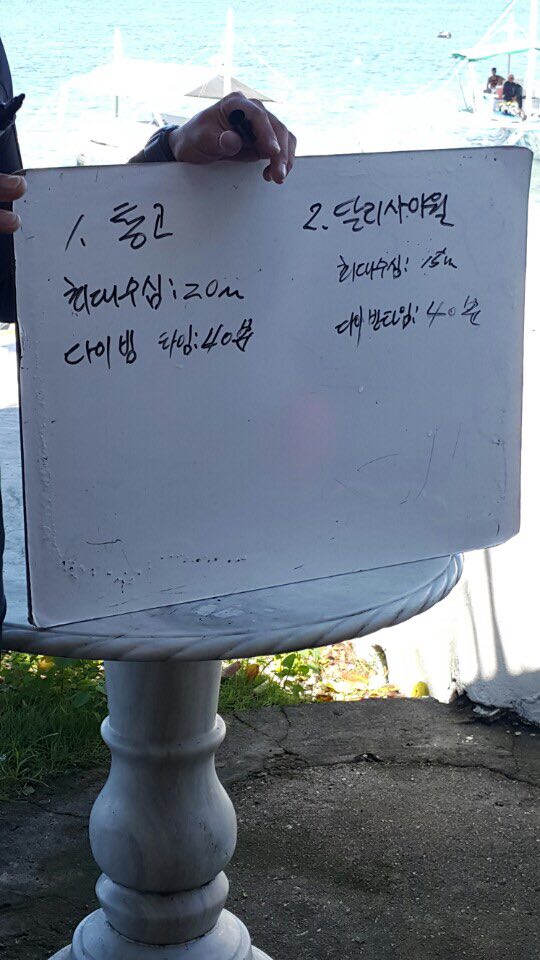 1. 통고
최대수심: 20m
다이빙 타임: 40분
2. 탈리사야월
최대수심: 15m
다이빙타임: 40분